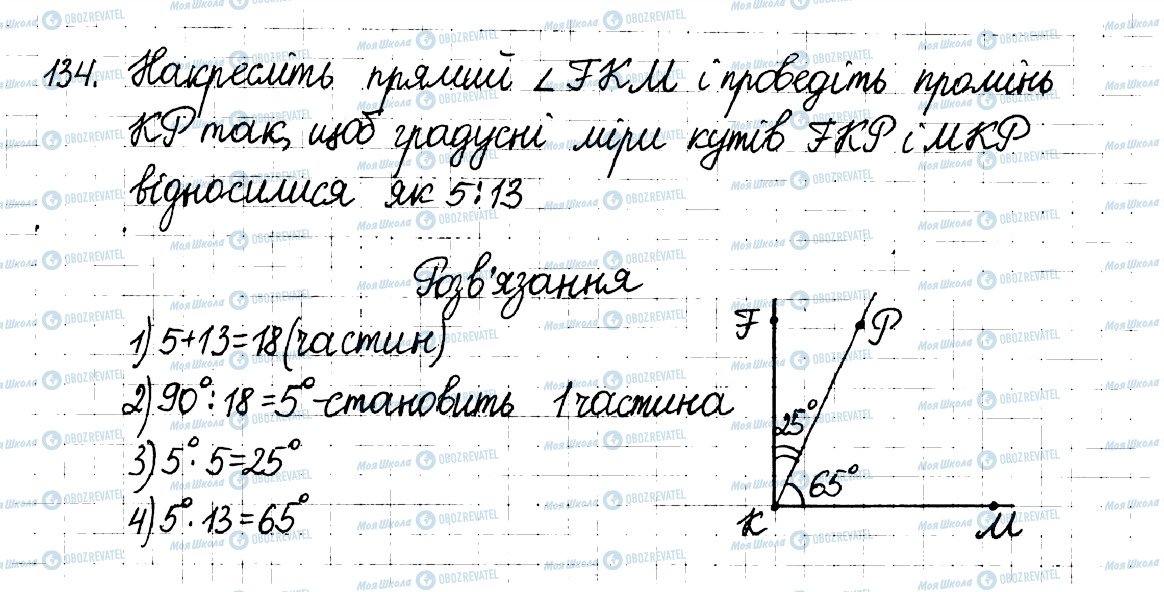 134. Накресліть прямий ∠FKM і проведіть промінь
KP так, щоб градусні міри кутів FKP і MKP
відносилися як 5:13
Розв'язання
1) 5+13=18 (частин)
2) 90°:18=5° - становить 1 частина
3) 5°·5=25°
4) 5°·13=65°
F
P
25°
65°
K
M
Моя Школа OBOZREVATEL